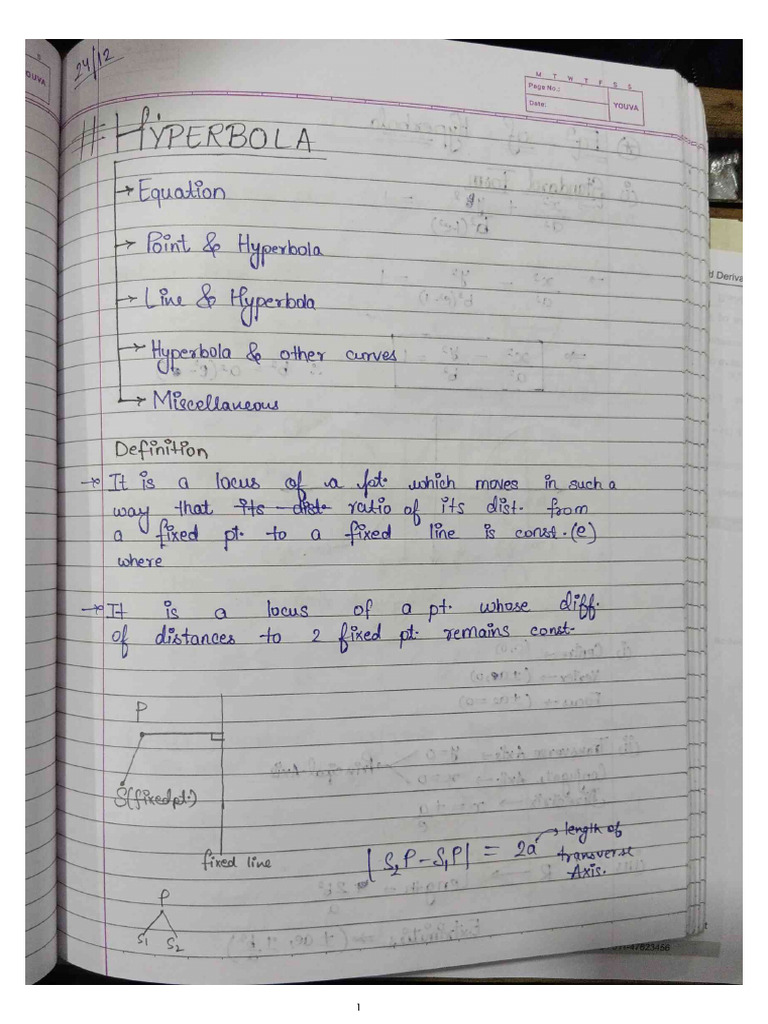 24/12
M T W T F S S
Page No.:
Date:
YOUVA
S
YOUVA
# HYPERBOLA
→ Equation
→ Point & Hyperbola
→ Line & Hyperbola
→ Hyperbola & other curves
→ Miscellaneous
d Deriva
Definition
→ It is a locus of a pt. which moves in such a
way that its dist. ratio of its dist. from
a fixed pt. to a fixed line is const. (e)
where
→ It is a locus of a pt. whose diff.
of distances to 2 fixed pt. remains const.
P
S(fixed pt.)
fixed line
|S₂P - S₁P| = 2a → length of
transverse
Axis.
P
S1 S2
47623456
1